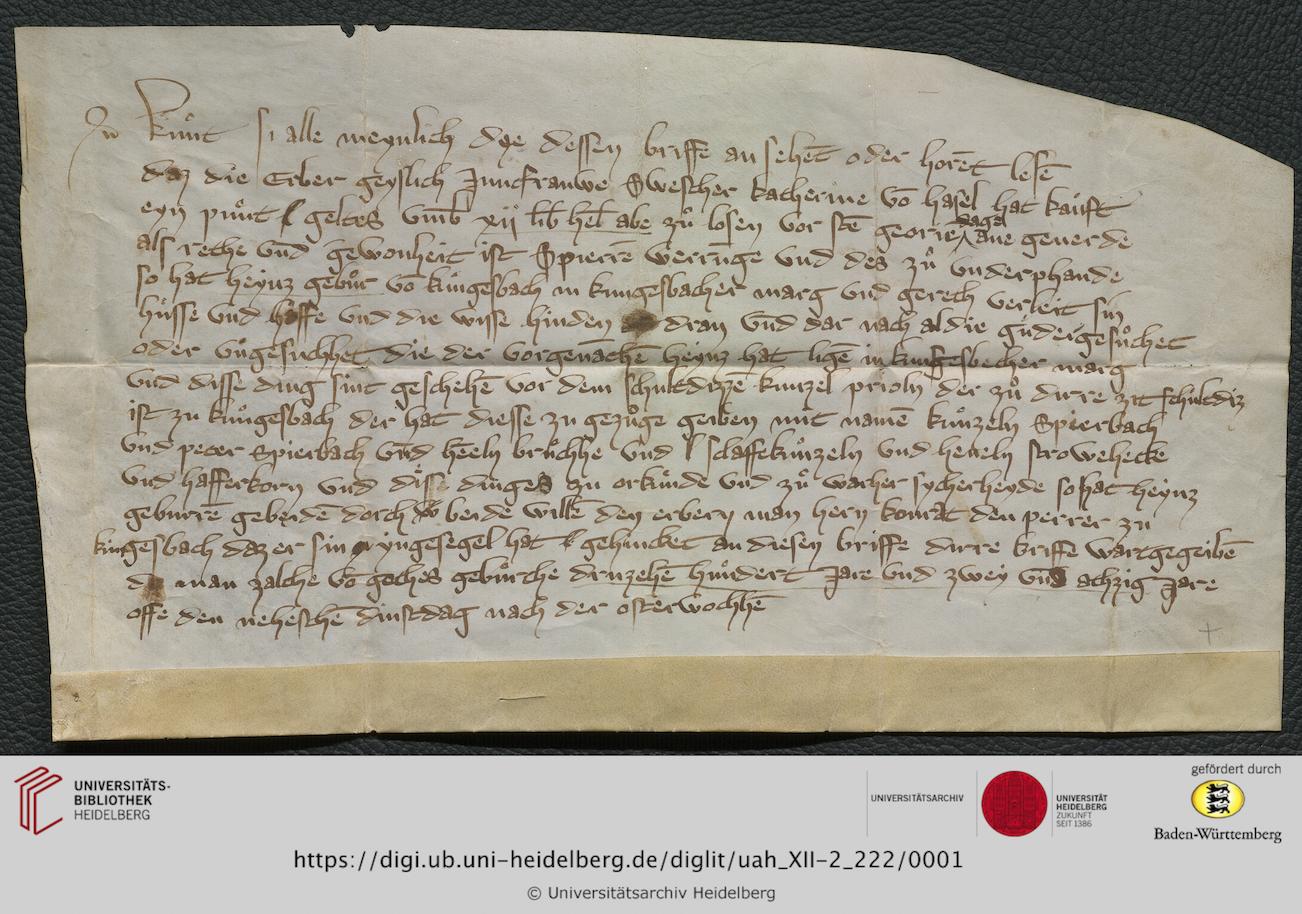 Kuͦnt si alle meynlich dye dessen briffe an sehēt oder horēt lesē
daz die Erber geyslich Juncfrauwe Swescher katherine vō hasel hat kauft
eyn puͦnt geltes vmb xij lib hel abe zuͦ losen vor stē georie dage ane geuerde
als rethe vnd gewonheit ist Spierrē werūnge vnd des zuͦ vnderphande
so hat heynz gebuͦr vō kuͦngesbach in kungesbacher marg vnd gerech verleit sin
huͦsse vnd hoffe vnd die wisse hinden dran vnd dar nach al die guder gesuͦchet
oder vngesuchhet die der vorgenāchē heynz hat ligē in kungesbecher marg
vnd disse ding sint geschehē vor dem schultdizzē kunzel prioln der zuͦ dirre zit schultdiz
ist zu kuͦngesbach der hat diesse zu gezuͦge geiben mit namē kuͦnzeln Spierbach
vnd peter Spierbach vnd hēeln bruͦchhe vnd schaffekuͦnzeln vnd heneln strowehecke
vnd hafferkorn vnd disse dinges zu orkuͦnde vnd zuͦ warher sycherheyde so hat heynz
geburrē gebeidē dorch beide willē den erbern man hern konrat den perrer zu
kingesbach daz er sin yngesegel hat gehincket an diesen briffe dirre briffe wart gegeibē
da man zalche vō goches gebuͦrche druzehē huͦndert Jare vnd zwey vnd achzig Jare
offe den neheschē dinstdag nach der osterwochhē
UNIVERSITÄTS-
BIBLIOTHEK
HEIDELBERG
UNIVERSITÄTSARCHIV
UNIVERSITÄT
HEIDELBERG
ZUKUNFT
SEIT 1386
gefördert durch
Baden-Württemberg
https://digi.ub.uni-heidelberg.de/diglit/uah_XII-2_222/0001
© Universitätsarchiv Heidelberg